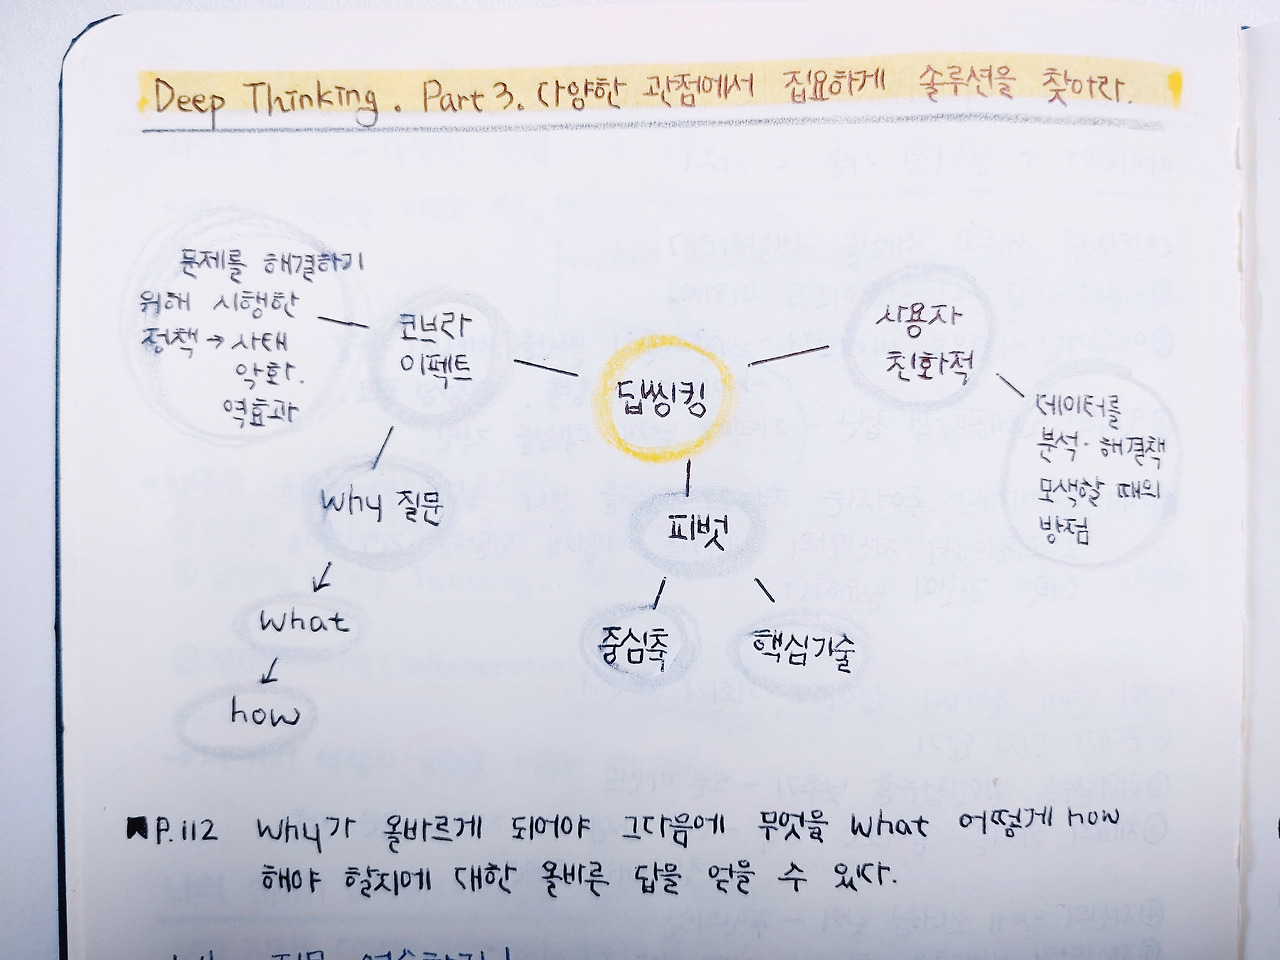 Deep Thinking. Part 3. 다양한 관점에서 집요하게 솔루션을 찾아라.
문제를 해결하기
위해 시행한
정책 → 사태
악화.
역효과
코브라
이펙트
딥씽킹
사용자
친화적
데이터를
분석·해결책
모색할 때의
방점
why 질문
what
how
피벗
중심축
핵심기술
P.112 why가 올바르게 되어야 그다음에 무엇을 what 어떻게 how
해야 할지에 대한 올바른 답을 얻을 수 있다.